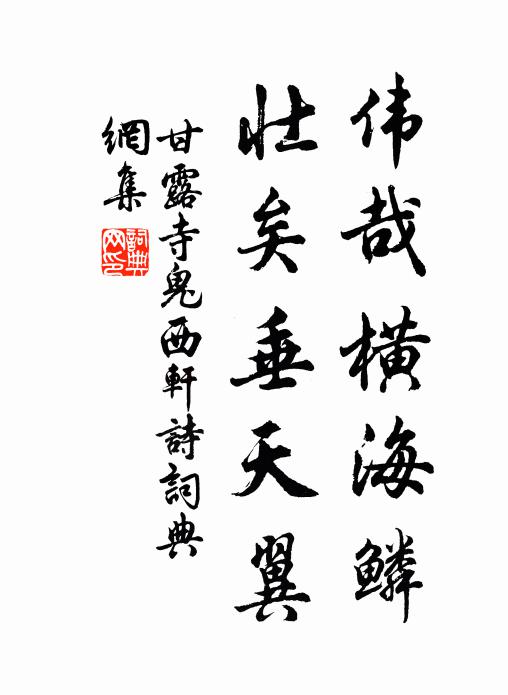 伟哉横海鳞
壮矣垂天翼
甘露寺鬼西軒詩詞典
網集
詞典网印